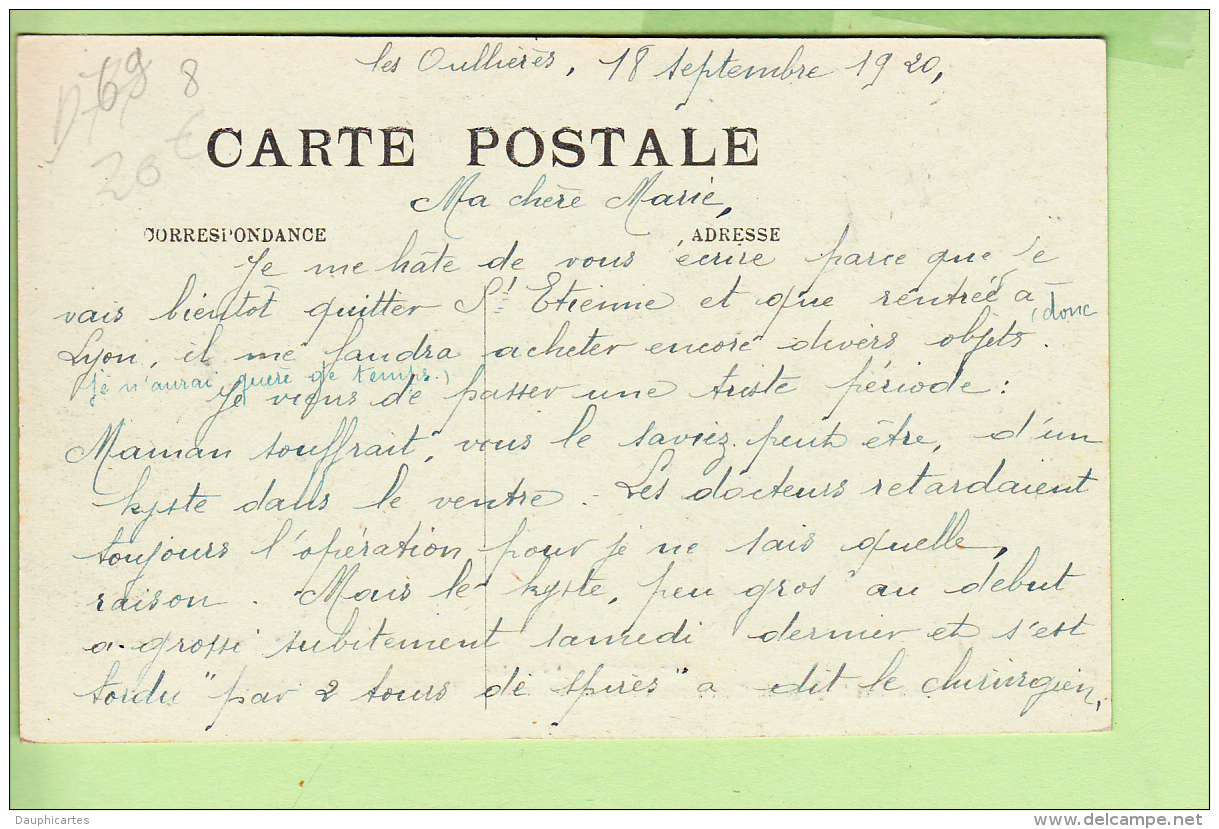 les Oullières, 18 septembre 1920,
D69 8
20 €
CARTE POSTALE
Ma chère Marie,
CORRESPONDANCE ADRESSE
Je me hâte de vous écrire parce que je
vais bientôt quitter St Etienne et que rentrée à
Lyon, il me faudra acheter encore divers objets. (donc
je n'aurai guère de temps.)
Je viens de passer une triste période :
Maman souffrait, vous le saviez peut être, d'un
kyste dans le ventre. Les docteurs retardaient
toujours l'opération pour je ne sais quelle
raison. Mais le kyste, peu gros au début
a grossi subitement samedi dernier et s'est
tordu "par 2 tours de spires" a dit le chirurgien,
Dauphicartes
delcampe.net